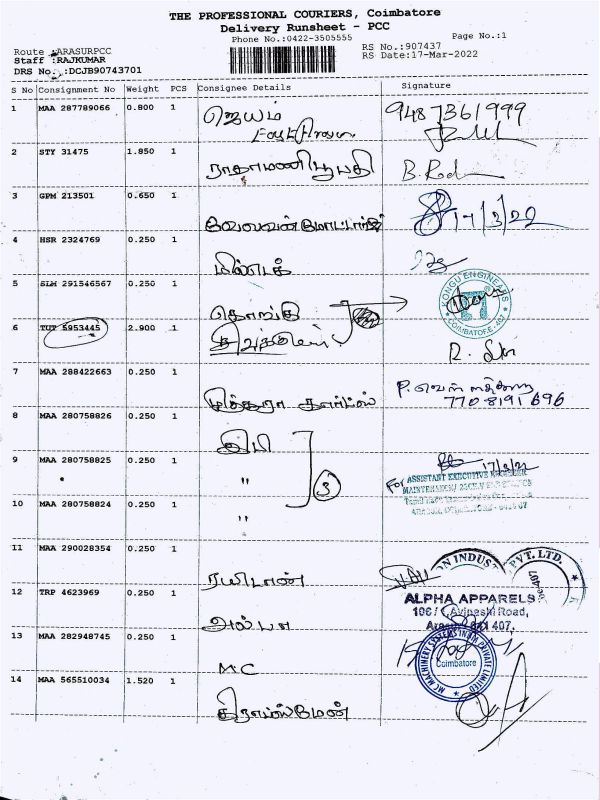 THE PROFESSIONAL COURIERS, Coimbatore
Delivery Runsheet - PCC
Phone No.:0422-3505555
Page No.:1
Route :ARASURPCC
Staff :RAJKUMAR
RS No.:907437
RS Date:17-Mar-2022
DRS No.:DCJB90743701
S No Consignment No Weight PCS Consignee Details Signature
1 MAA 287789066 0.800 1 ஜெயம் 9487361999
2 STY 31475 1.850 1 ராதாமணி பூபதி B.
3 GPM 213501 0.650 1 வேலவன் மோட்டார்ஸ் 17/3/22
4 HSR 2324769 0.250 1
5 SLM 291546567 0.250 1 கொங்கு
KONGU ENGINEARS
COIMBATORE - 407
6 TUT 5953445 2.900 1 R.
7 MAA 288422663 0.250 1 P.
7708191696
8 MAA 280758826 0.250 1 இபி
9 MAA 280758825 0.250 1 " 3 17/3/22
For ASSISTANT EXECUTIVE ENGINEER
10 MAA 280758824 0.250 1 "
11 MAA 290028354 0.250 1
INDUST PVT. LTD.
12 TRP 4623969 0.250 1 அல்பா
ALPHA APPARELS
106/ Avinashi Road,
Arasur 641 407.
13 MAA 282948745 0.250 1 MC
MC MACHINERY SYSTEMS INDIA PRIVATE LIMITED
Coimbatore
14 MAA 565510034 1.520 1